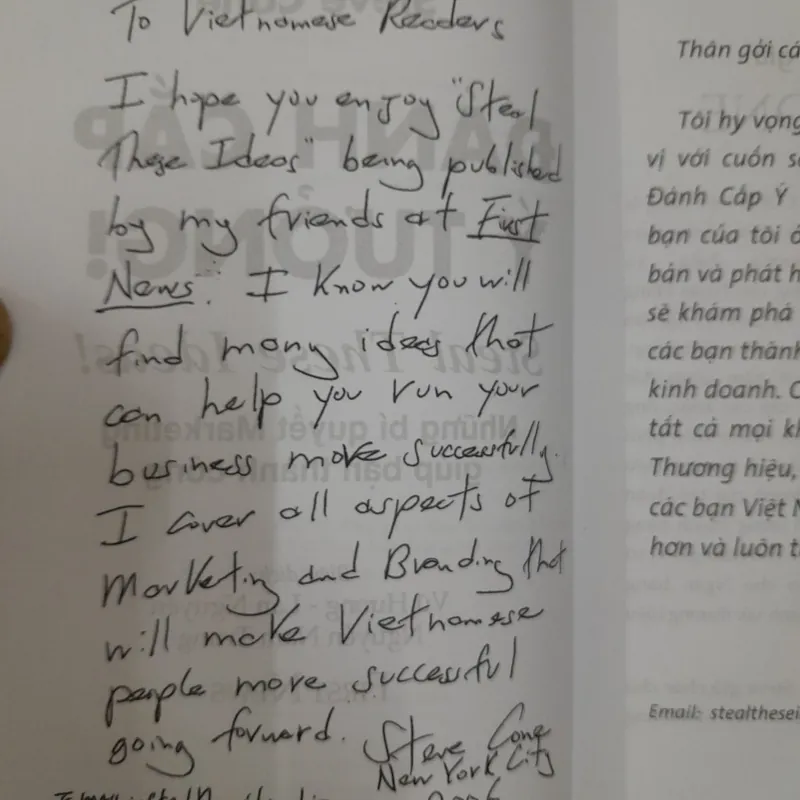 To Vietnamese Readers
I hope you enjoy "Steal
These Ideas" being published
by my friends at First
News. I know you will
find many ideas that
can help you run your
business more successfully.
I cover all aspects of
Marketing and Branding that
will make Vietnamese
people more successful
going forward. Steve Cone
New York City
Thân gởi cá
Tôi hy vọng
vị với cuốn s
Đánh Cắp Ý
bạn của tôi ở
bản và phát h
sẽ khám phá
các bạn thành
kinh doanh. C
tất cả mọi kh
Thương hiệu,
các bạn Việt N
hơn và luôn t
Email: stealthesei